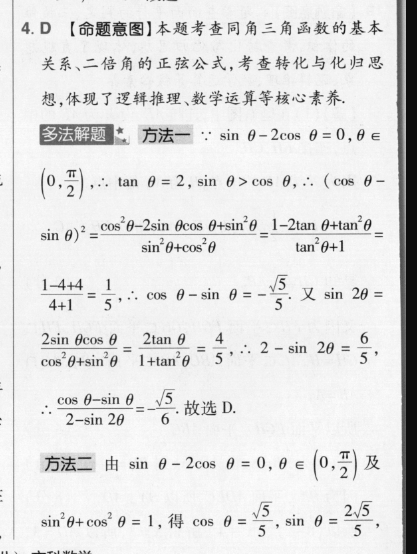 4. D 【命题意图】本题考查同角三角函数的基本
关系、二倍角的正弦公式,考查转化与化归思
想,体现了逻辑推理、数学运算等核心素养.
多法解题 方法一 ∵ sin θ-2cos θ=0,θ∈
(0,π/2),∴ tan θ=2,sin θ>cos θ,∴ (cos θ-
sin θ)²=(cos²θ-2sin θcos θ+sin²θ)/(sin²θ+cos²θ)=(1-2tan θ+tan²θ)/(tan²θ+1)=
(1-4+4)/(4+1)=1/5,∴ cos θ-sin θ=-√5/5. 又 sin 2θ=
(2sin θcos θ)/(cos²θ+sin²θ)=(2tan θ)/(1+tan²θ)=4/5,∴ 2-sin 2θ=6/5,
∴ (cos θ-sin θ)/(2-sin 2θ)=-√5/6. 故选 D.
方法二 由 sin θ-2cos θ=0,θ∈(0,π/2)及
sin²θ+cos²θ=1,得 cos θ=√5/5,sin θ=2√5/5,